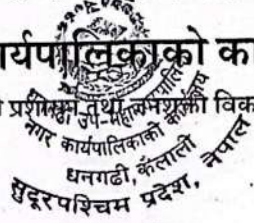 र्यपालिकाको का
प्रशासन तथा जनशक्ती विका
धनगढी उप-महानगरपालिका
नगर कार्यपालिकाको कार्यालय
धनगढी, कैलाली
सुदूरपश्चिम प्रदेश, नेपाल